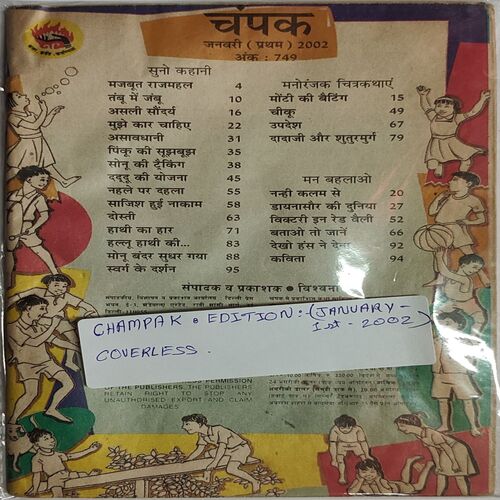 चंपक
जनवरी ( प्रथम ) 2002
अंक : 749
सुनो कहानी
मजबूत राजमहल 4
तंबू में जंबू 10
असली सौंदर्य 16
मुझे कार चाहिए 22
असावधानी 31
पिंकू की सूझबूझ 35
सोनू की ट्रैकिंग 38
ददृदू की योजना 45
नहले पर दहला 55
साजिश हुई नाकाम 58
दोस्ती 63
हाथी का हार 71
हल्लू हाथी की... 83
मोनू बंदर सुधर गया 88
स्वर्ग के दर्शन 95
मनोरंजक चित्रकथाएं
मोंटी की बैटिंग 15
चीकू 49
उपदेश 67
दादाजी और शुतुरमुर्ग 79
मन बहलाओ
नन्ही कलम से 20
डायनासौर की दुनिया 27
विक्टरी इन रेड वैली 52
बताओ तो जानें 66
देखो हंस न देना 92
कविता 94
संपादक व प्रकाशक • विश्वना
CHAMPAK • EDITION:-(JANUARY-
1st-2002)
COVERLESS.
OF THE PUBLISHERS. THE PUBLISHERS
RETAIN RIGHT TO STOP ANY
UNAUTHORISED EXPORT AND CLAIM
DAMAGES